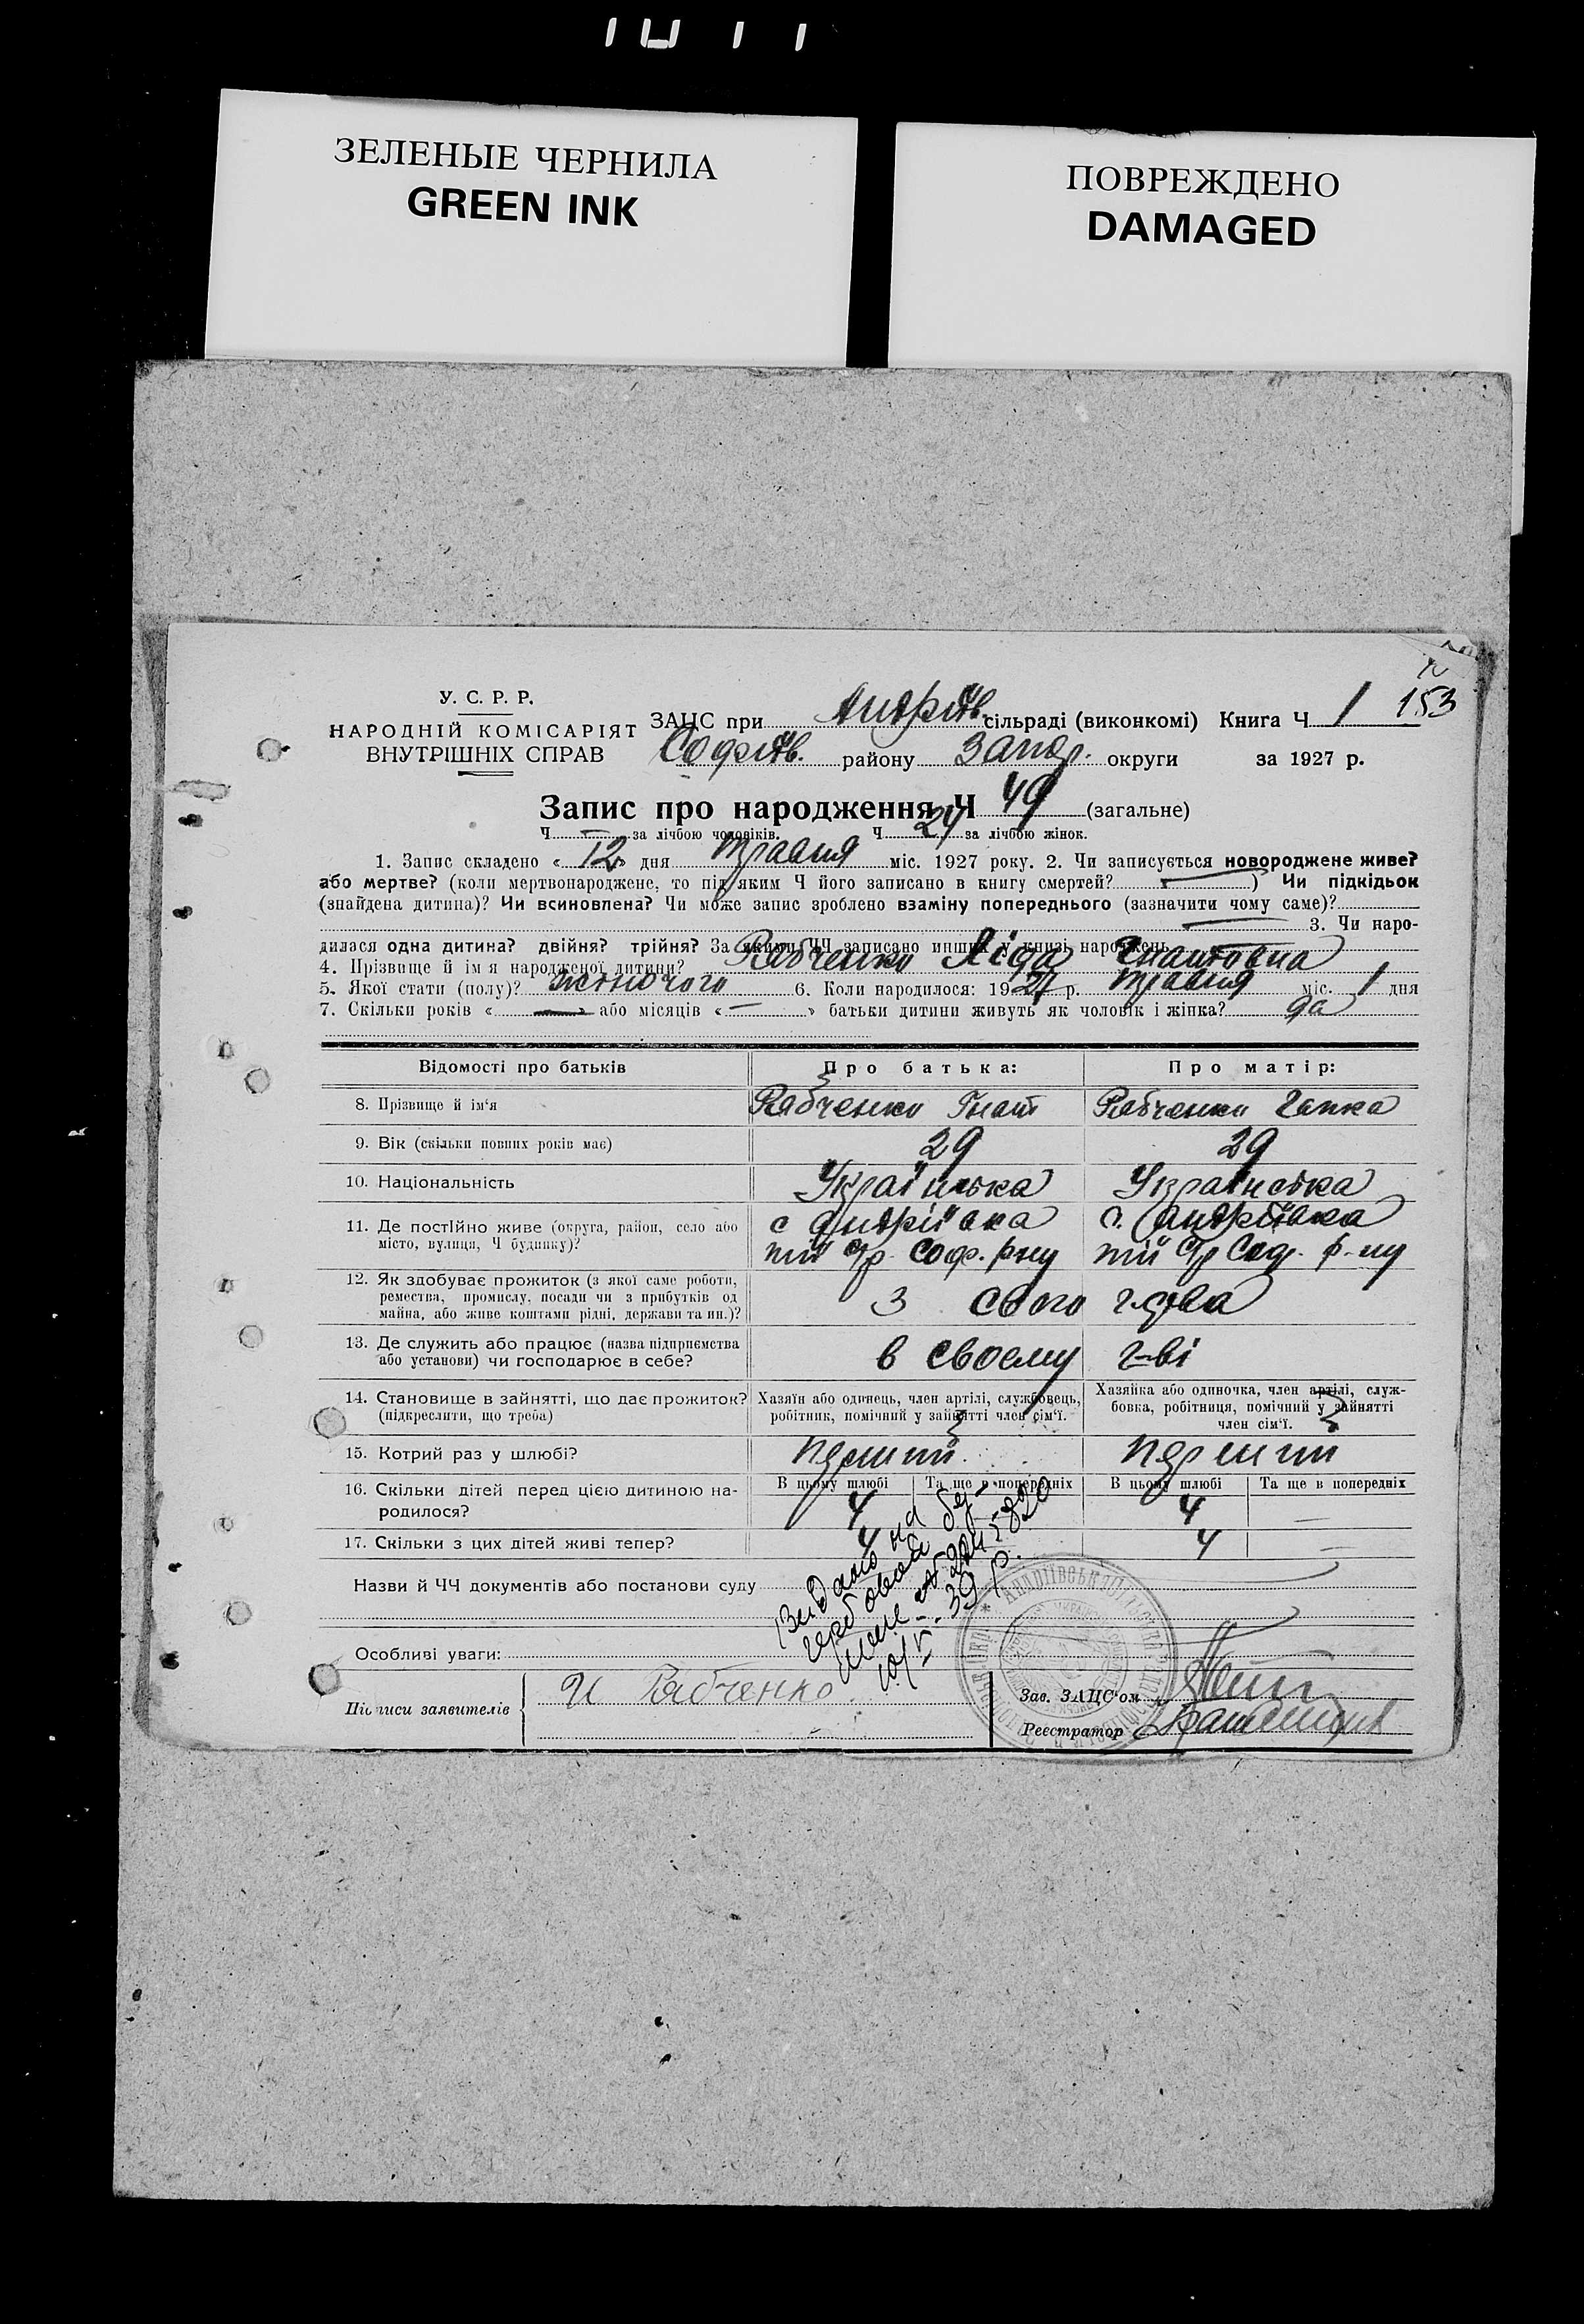 ЗЕЛЕНЫЕ ЧЕРНИЛА
GREEN INK
ПОВРЕЖДЕНО
DAMAGED
У. С. Р. Р.
НАРОДНІЙ КОМІСАРІЯТ
ВНУТРІШНІХ СПРАВ
153
ЗАЦС при Андріїв. сільраді (виконкомі) Книга Ч 1
Софіїв. району Запор. округи за 1927 р.
Запис про народження Ч 49 (загальне)
Ч за лічбою чоловіків. Ч 24 за лічбою жінок.
1. Запис складено « 12 » дня травня міс. 1927 року. 2. Чи записується новороджене живе?
або мертве? (коли мертвонароджене, то під яким Ч його записано в книгу смертей? ) Чи підкідьок
(знайдена дитина)? Чи всиновлена? Чи може запис зроблено взаміну попереднього (зазначити чому саме)?
3. Чи наро-
дилася одна дитина? двійня? трійня? За якими ЧЧ записано инших у книзі народжень
4. Прізвище й ім я народженої дитини? Рябченко Ліда Гнатовна
5. Якої стати (полу)? жіночого 6. Коли народилося: 1927 р. травня міс. 1 дня
7. Скільки років « — » або місяців « — » батьки дитини живуть як чоловік і жінка? да
Відомості про батьків Про батька: Про матір:
8. Прізвище й ім‘я Рябченко Гнат Рябченко Гапка
9. Вік (скільки повних років має) 29 29
10. Національність Українська Українська
11. Де постійно живе (округа, район, село або с Андріївка с. Андріївка
місто, вулиця, Ч будинку)? тії с/р Соф. рну тії с/р Соф. р-ну
12. Як здобуває прожиток (з якої саме роботи,
ремества, промислу, посади чи з прибутків од
майна, або живе коштами рідні, держави та ин.)? З свого г-дова
13. Де служить або працює (назва підприємства
або установи) чи господарює в себе? в своему г-ві
14. Становище в зайнятті, що дає прожиток? Хазяїн або одинець, член артілі, службовець, Хазяйка або одиночка, член артілі, служ-
(підкреслити, що треба) робітник, помічний у зайнятті член сім‘ї. бовка, робітниця, помічний у зайнятті
член сім‘ї.
15. Котрий раз у шлюбі? перший перший
16. Скільки дітей перед цією дитиною на- В цьому шлюбі Та ще в попередніх В цьому шлюбі Та ще в попередніх
родилося? 4 4 —
17. Скільки з цих дітей живі тепер? 4 4 —
Назви й ЧЧ документів або постанови суду
Видано на
гербовой
39 р.
Особливі уваги:
Підписи заявителів И Рябченко
Зав. ЗАЦС‘ом
Реєстратор